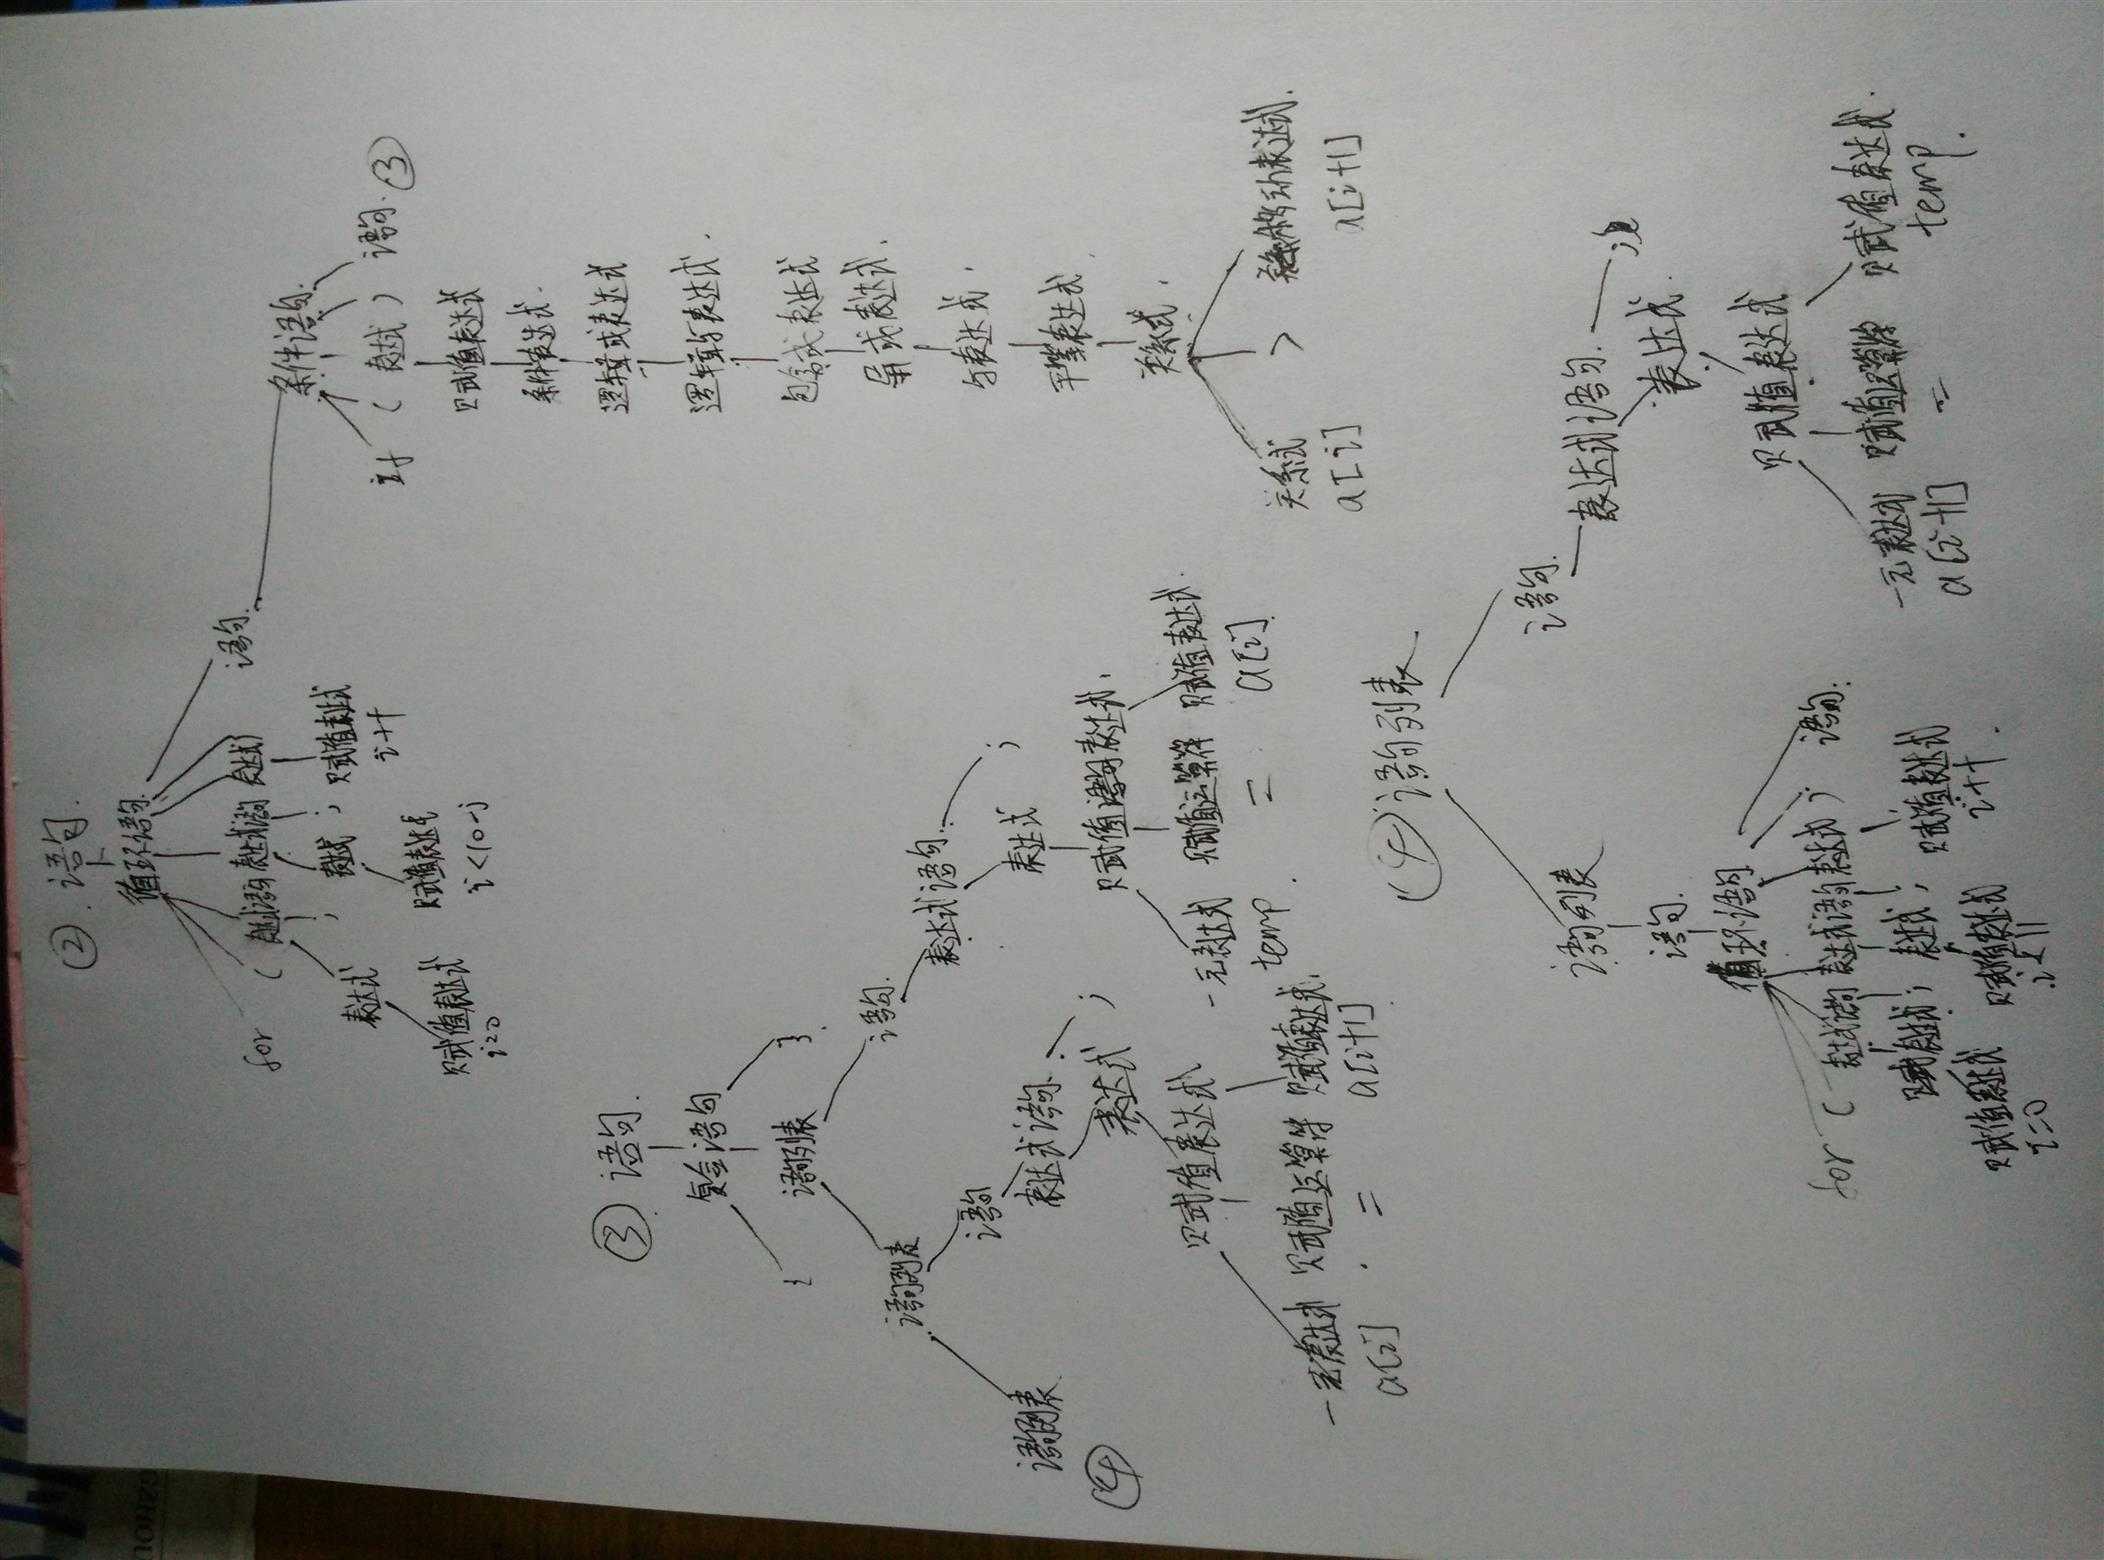 ② 语句.
循环语句.
for ( 表达式语句 表达式语句 表达式 ) 语句.
表达式 ; 表达式 ; 赋值表达式
i++
赋值表达式 赋值表达式
i=0 i<10-j
条件语句.
if ( 表达式 ) 语句. ③
赋值表达式
条件表达式.
逻辑或表达式
逻辑与表达式.
包含或表达式
异或表达式.
与表达式.
平等表达式
关系式.
关系式 > 移动表达式.
a[i] a[i+1]
③ 语句.
复合语句
{ 语句列表 }.
语句列表 语句.
语句列表 语句 表达式语句.
④ 表达式语句. 表达式 ;
表达式 ; 赋值表达式.
赋值表达式 一元表达式 赋值运算符 赋值表达式.
temp = a[i].
一元表达式 赋值运算符 赋值表达式.
a[i] = a[i+1]
④ 语句列表
语句列表 语句.
语句. 表达式语句. ;
循环语句 表达式
for ( 表达式语句 表达式语句 表达式 ) 语句.
表达式 ; 表达式 ; 赋值表达式
i++.
赋值表达式 赋值表达式
i=0
赋值表达式
一元表达式 赋值运算符 赋值表达式.
a[i+1] = temp.